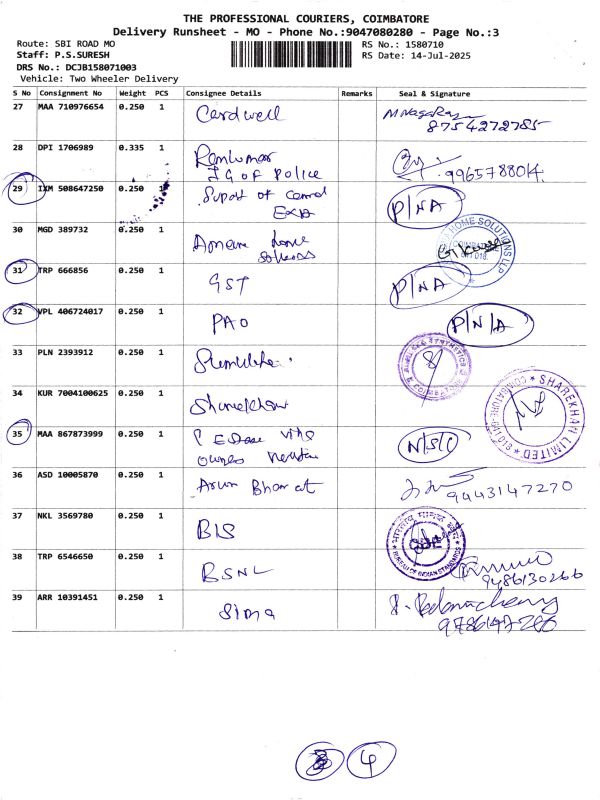 THE PROFESSIONAL COURIERS, COIMBATORE
Delivery Runsheet - MO - Phone No.:9047080280 - Page No.:3
Route: SBI ROAD MO
RS No.: 1580710
Staff: P.S.SURESH
RS Date: 14-Jul-2025
DRS No.: DCJB158071003
Vehicle: Two Wheeler Delivery
S No Consignment No Weight PCS Consignee Details Remarks Seal & Signature
27 MAA 710976654 0.250 1 Cardwell
8754272785
28 DPI 1706989 0.335 1 Ramkumar
IG OF Police 9965788014
29 IXM 508647250 0.250 1 Supdt of Central P/NA
30 MGD 389732 0.250 1 HOME SOLUTIONS LLP
31 TRP 666856 0.250 1 GST P/NA
32 VPL 406724017 0.250 1 PAO P/N/A
33 PLN 2393912 0.250 1 SYNTHETICS
34 KUR 7004100625 0.250 1 Sharekhan SHAREKHAN LIMITED
35 MAA 867873999 0.250 1 N/S/C
36 ASD 10005870 0.250 1 Arun Bharat
9443147270
37 NKL 3569780 0.250 1 BIS BUREAU OF INDIAN STANDARDS
38 TRP 6546650 0.250 1 BSNL
9486130266
39 ARR 10391451 0.250 1 Sima
4